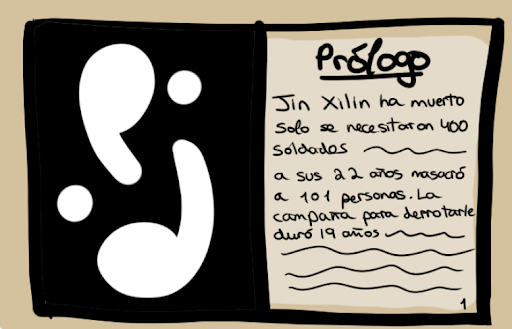 Prólogo
Jin Xilin ha muerto
solo se necesitaron 400
soldados
a sus 22 años masacró
a 101 personas. La
campaña para derrotarle
duró 19 años
1